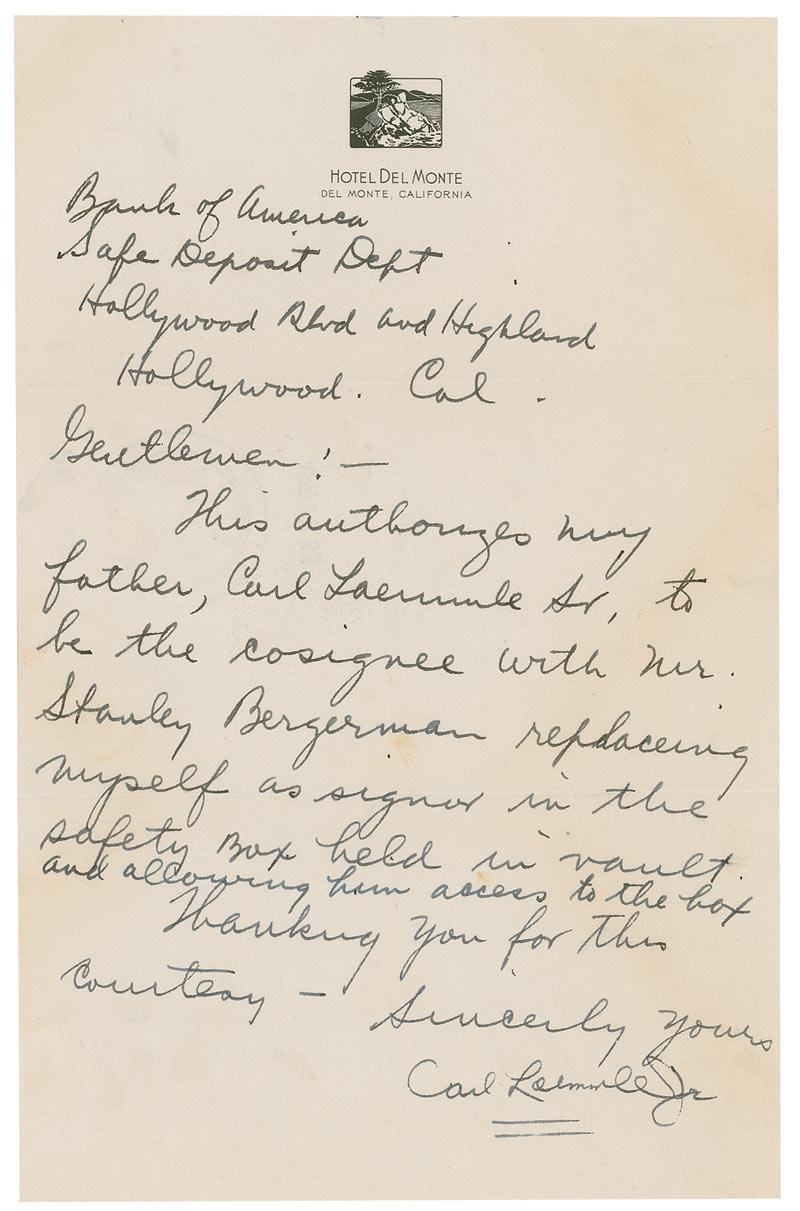 HOTEL DEL MONTE
DEL MONTE, CALIFORNIA
Bank of America
Safe Deposit Dept
Hollywood Blvd and Highland
Hollywood. Cal.
Gentlemen!—
This authorizes my
father, Carl Laemmle Sr, to
be the cosignee with Mr.
Stanley Bergerman replaceing
myself as signor in the
safety Box held in vault.
and allowing him access to the box
Thanking you for this
courtesy —
Sincerly Yours
Carl Laemmle Jr